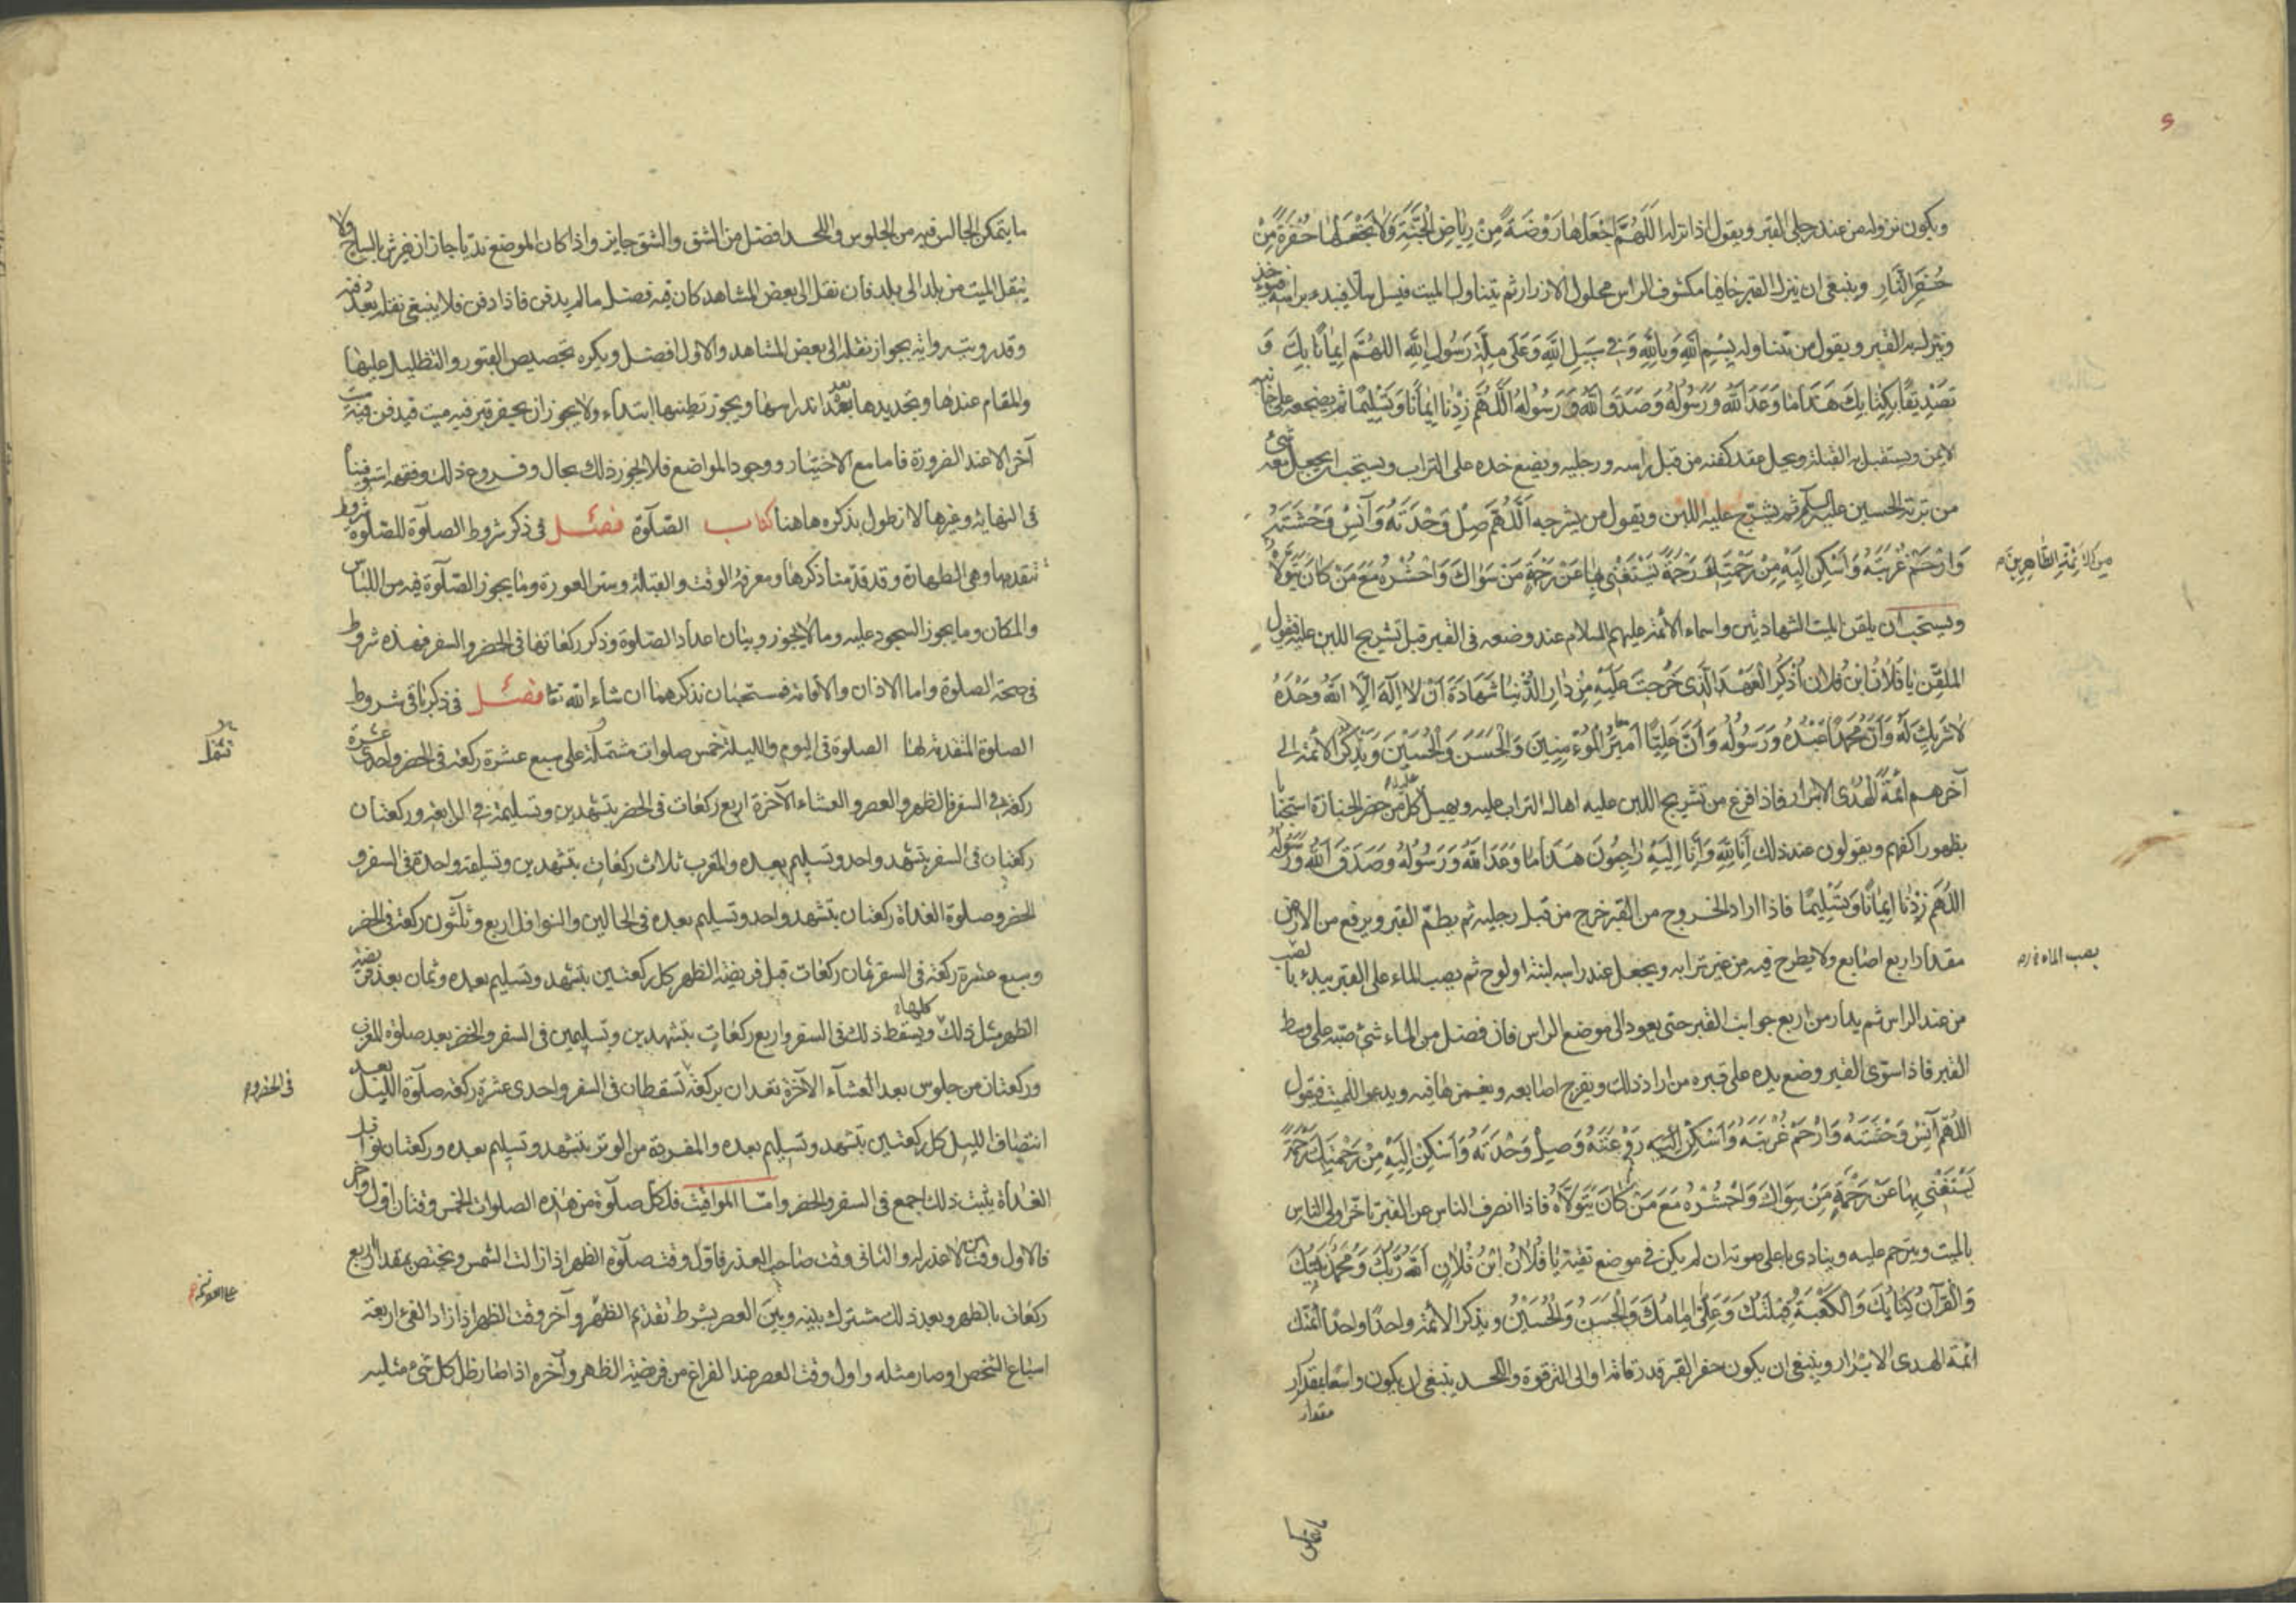 ويكون نزوله من عند رجلي القبر ويقول اذا نزله اَللّهُمَّ اجْعَلْهٰا رَوْضَةً مِنْ رِيٰاضِ الْجَنَّةِ وَلاٰ تَجْعَلْهٰا حُفْرَةً مِنْ
حُفَرِ النّٰارِ وينبغى ان ينزل القبر حافيا مكشوف الراس محلول الازرار ثم يتناول الميت فيسل سلا فيبدء براسه فيؤخذ
وينزل به القبر ويقول من يتناوله بِسْمِ اللهِ وَبِاللهِ وَفى سَبيلِ اللهِ وَعَلى مِلَّةِ رَسُولِ اللهِ اللهُمَّ ايمٰاناً بِكَ وَ
تَصْديقاً بِكِتٰابِكَ هٰذٰا مٰا وَعَدَ اللهُ وَرَسُولُهُ وَصَدَقَ اللهُ وَرَسُولُهُ اَللّهُمَّ زِدْنٰا ايمٰاناً وَتَسْليماً ثم يضجعه على جانبه
الايمن ويستقبل به القبلة ويحل عقد كفنه من قبل راسه ورجليه ويضع خده على التراب ويستحب ان يجعل معه شئ
من تربة الحسين عليه السلام ثم يشرج عليه اللبن ويقول من يشرجه اَللّهُمَّ صِلْ وَحْدَتَهُ وَآنِسْ وَحْشَتَهُ
وَارْحَمْ غُرْبَتَهُ وَاَسْكِنْ اِلَيْهِ مِنْ رَحْمَتِكَ رَحْمَةً يَسْتَغْنى بِهٰا عَنْ رَحْمَةِ مَنْ سِوٰاكَ وَاحْشُرْهُ مَعَ مَنْ كٰانَ يَتَوَلاّٰهُ
مِنَ الاَئِمَّةِ الطّٰاهِرينَ
ويستحب ان يلقن الميت الشهادتين واسماء الائمة عليهم السلام عند وضعه فى القبر قبل تشريج اللبن عليه فيقول
الملقّن يٰا فُلاٰنُ ابْنُ فُلاٰنٍ اُذْكُرِ الْعَهْدَ الَّذى خَرَجْتَ عَلَيْهِ مِنْ دٰارِ الدُّنْيٰا شَهٰادَةَ اَنْ لاٰ اِلٰهَ اِلاَّ اللهُ وَحْدَهُ
لاٰ شَريكَ لَهُ وَاَنَّ مُحَمَّداً عَبْدُهُ وَرَسُولُهُ وَاَنَّ عَلِيّاً اَميرُ الْمُؤْمِنينَ وَالْحَسَنَ وَالْحُسَيْنَ وَيَذْكُرُ الائمة الى
آخرهم اَئِمَّةُ الْهُدٰى الاَبرار فاذا فرغ من تشريج اللبن عليه اهال التراب عليه ويهيل كل من حضر الجنازة استحبابا
بظهور اكفهم ويقولون عند ذلك اِنّٰا لِلّهِ وَاِنّٰا اِلَيْهِ رٰاجِعُونَ هٰذٰا مٰا وَعَدَ اللهُ وَرَسُولُهُ وَصَدَقَ اللهُ وَرَسُولُهُ
اللهُمَّ زِدْنٰا ايمٰاناً وَتَسْليماً فاذا اراد الخروج من القبر خرج من قبل رجليه ثم يطمّ القبر ويرفع من الارض
مقدار اربع اصابع ولا يطرح فيه من غير ترابه ويجعل عند راسه لبنة او لوح ثم يصب الماء على القبر يبدء بالصب
يصب الماء
من عند الراس ثم يدار من اربع جوانب القبر حتى يعود الى موضع الراس فان فضل من الماء شئ صبّه على وسط
القبر فاذا استوى القبر وضع يده على قبره من اراد ذلك ويفرج اصابعه ويغمزها فيه ويدعو للميت فيقول
اللّهُمَّ آنِسْ وَحْشَتَهُ وَارْحَمْ غُرْبَتَهُ وَاَسْكِنْ رَوْعَتَهُ وَصِلْ وَحْدَتَهُ وَاَسْكِنْ اِلَيْهِ مِنْ رَحْمَتِكَ رَحْمَةً
يَسْتَغْنى بِهٰا عَنْ رَحْمَةِ مَنْ سِوٰاكَ وَاحْشُرْهُ مَعَ مَنْ كٰانَ يَتَوَلاّٰهُ فاذا انصرف الناس عن القبر تاخر اولى الناس
بالميت ويترحم عليه وينادى باعلى صوته ان لم يكن فى موضع تقية يٰا فُلاٰنُ ابْنُ فُلاٰنٍ اَللهُ رَبُّكَ وَمُحَمَّدٌ نَبِيُّكَ
وَالْقُرْآنُ كِتٰابُكَ وَالْكَعْبَةُ قِبْلَتُكَ وَعَلِيٌّ اِمٰامُكَ وَالْحَسَنُ وَالْحُسَيْنُ ويذكر الائمة واحداً واحداً ائمتك
ائمة الهدى الابرار وينبغى ان يكون حفر القبر قدر قامة او الى الترقوة واللحد ينبغى ان يكون واسعا بمقدار
مقدار
ما يتمكن
ما يتمكن الجالس فيه من الجلوس واللحد افضل من الشق والشق جايز واذا كان الموضع نديا جاز ان يفرش بالساج ولا
ينقل الميت من بلد الى بلد فان نقل الى بعض المشاهد كان فيه فضل ما لم يدفن فاذا دفن فلا ينبغى نقله بعد دفنه
وقد رويت رواية بجواز نقله الى بعض المشاهد والاول افضل ويكره تجصيص القبور والتظليل عليها
والمقام عندها وتجديدها بعد اندراسها ويجوز تطيينها ابتداء ولا يجوز ان يحفر قبر فيه ميت فيدفن فيه ميت
آخر الا عند الضرورة فاما مع الاختيار ووجود المواضع فلا يجوز ذلك بحال وفروع ذلك وفقهه استوفيناه
فى النهاية وغيرها لا نطول بذكره هاهنا كتاب الصّلوة فصل فى ذكر شروط الصلوة للصلوة شروط
تتقدمها وهى الطهارة وقد قدّمنا ذكرها ومعرفة الوقت والقبلة وستر العورة وما يجوز الصّلوة فيه من اللباس
والمكان وما يجوز السجود عليه وما لا يجوز وبيان اعداد الصّلوة وذكر ركعاتها فى الحضر والسفر فهذه شروط
فى صحة الصلوة واما الاذان والاقامة فمستحبان نذكرهما ان شاء الله تعا فصل فى ذكر باقى شروط
الصلوة المتقدمة لها الصلوة فى اليوم والليلة خمس صلوات مشتملة على سبع عشرة ركعة فى الحضر واحدى عشرة
ركعة فى السفر فالظهر والعصر والعشاء الآخرة اربع ركعات فى الحضر بتشهدين وتسليمة فى الرابعة وركعتان
ركعتان فى السفر بتشهد واحد وتسليم بعده والمغرب ثلاث ركعات بتشهدين وتسليمة واحدة فى السفر و
الحضر وصلوة الغداة ركعتان بتشهد واحد وتسليم بعده فى الحالين والنوافل اربع وثلثون ركعة فى الحضر
وسبع عشرة ركعة فى السفر ثمان ركعات قبل فريضة الظهر كل ركعتين بتشهد وتسليم بعده وثمان بعد فريضة
الظهر مثل ذلك ويسقط ذلك كلها فى السفر واربع ركعات بتشهدين وتسليمين فى السفر والحضر بعد صلوة المغرب
وركعتان من جلوس بعد العشآء الآخرة تعدان بركعة تسقطان فى السفر واحدى عشرة ركعة صلوة الليل بعد
فى الحضر
انتصاف الليل كل ركعتين بتشهد وتسليم بعده والمفردة من الوتر بتشهد وتسليم بعده وركعتان نوافل
الغداة يثبت ذلك اجمع فى السفر والحضر وامّا المواقيت فلكل صلوة من هذه الصلوات الخمس وقتان اول وآخر
فالاول وقت من لا عذر له والثانى وقت صاحب العذر فاول وقت صلوة الظهر اذا زالت الشمس ويختص بمقدار اربع
ركعات بالظهر وبعد ذلك مشترك بينه وبين العصر بشرط تقديم الظهر وآخر وقت الظهر اذا زاد الفئ اربعة
اسباع الشخص او صار مثله واول وقت العصر عند الفراغ من فريضة الظهر وآخره اذا صار ظل كل شئ مثليه